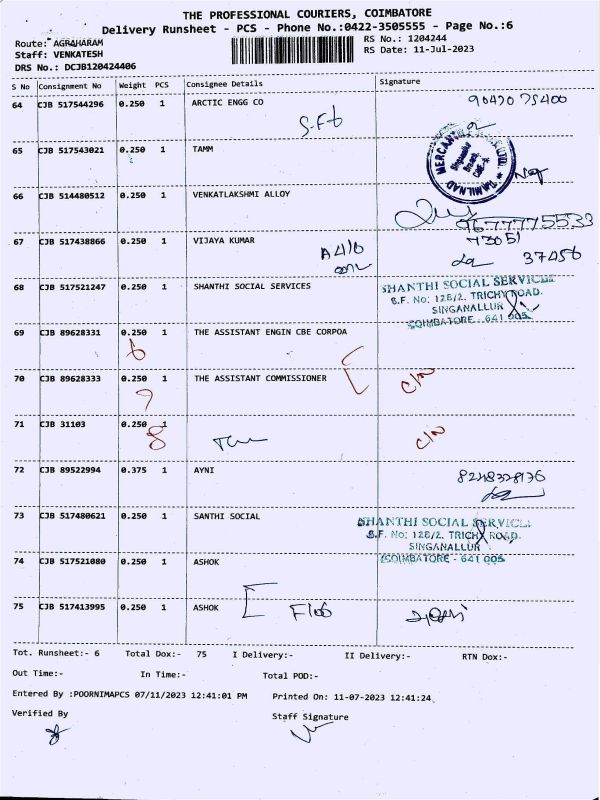 THE PROFESSIONAL COURIERS, COIMBATORE
Delivery Runsheet - PCS - Phone No.:0422-3505555 - Page No.:6
Route: AGRAHARAM
RS No.: 1204244
Staff: VENKATESH
RS Date: 11-Jul-2023
DRS No.: DCJB120424406
S No Consignment No Weight PCS Consignee Details Signature
64 CJB 517544296 0.250 1 ARCTIC ENGG CO 90470 75400
S.F6
65 CJB 517543021 0.250 1 TAMM
66 CJB 514480512 0.250 1 VENKATLAKSHMI ALLOY
9677775533
67 CJB 517438866 0.250 1 VIJAYA KUMAR 73051
A4/6 37456
68 CJB 517521247 0.250 1 SHANTHI SOCIAL SERVICES SHANTHI SOCIAL SERVICES
S.F. No: 128/2. TRICHY ROAD.
SINGANALLUR
COIMBATORE - 641 005
69 CJB 89628331 0.250 1 THE ASSISTANT ENGIN CBE CORPOA
6
70 CJB 89628333 0.250 1 THE ASSISTANT COMMISSIONER
7
71 CJB 31103 0.250 1
8
72 CJB 89522994 0.375 1 AYNI
73 CJB 517480621 0.250 1 SANTHI SOCIAL SHANTHI SOCIAL SERVICES
S.F. No: 128/2. TRICHY ROAD.
SINGANALLUR
74 CJB 517521080 0.250 1 ASHOK COIMBATORE - 641 005
75 CJB 517413995 0.250 1 ASHOK
Tot. Runsheet:- 6 Total Dox:- 75 I Delivery:- II Delivery:- RTN Dox:-
Out Time:- In Time:- Total POD:-
Entered By :POORNIMAPCS 07/11/2023 12:41:01 PM Printed On: 11-07-2023 12:41:24
Verified By Staff Signature